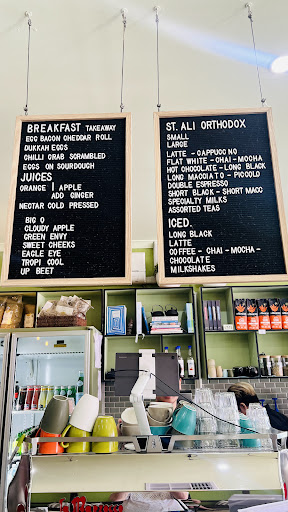 BREAKFAST TAKEAWAY
EGG BACON CHEDDAR ROLL
DUKKAH EGGS
CHILLI CRAB SCRAMBLED
EGGS ON SOURDOUGH
JUICES
ORANGE | APPLE
ADD GINGER
NECTAR COLD PRESSED
BIG O
CLOUDY APPLE
GREEN ENVY
SWEET CHEEKS
EAGLE EYE
TROPI COOL
UP BEET
ST. ALI ORTHODOX
SMALL
LARGE
LATTE - CAPPUCCINO
FLAT WHITE - CHAI - MOCHA
HOT CHOCOLATE - LONG BLACK
LONG MACCIATO - PICCOLO
DOUBLE ESPRESSO
SHORT BLACK - SHORT MACC
SPECIALTY MILKS
ASSORTED TEAS
ICED.
LONG BLACK
LATTE
COFFEE - CHAI - MOCHA -
CHOCOLATE
MILKSHAKES